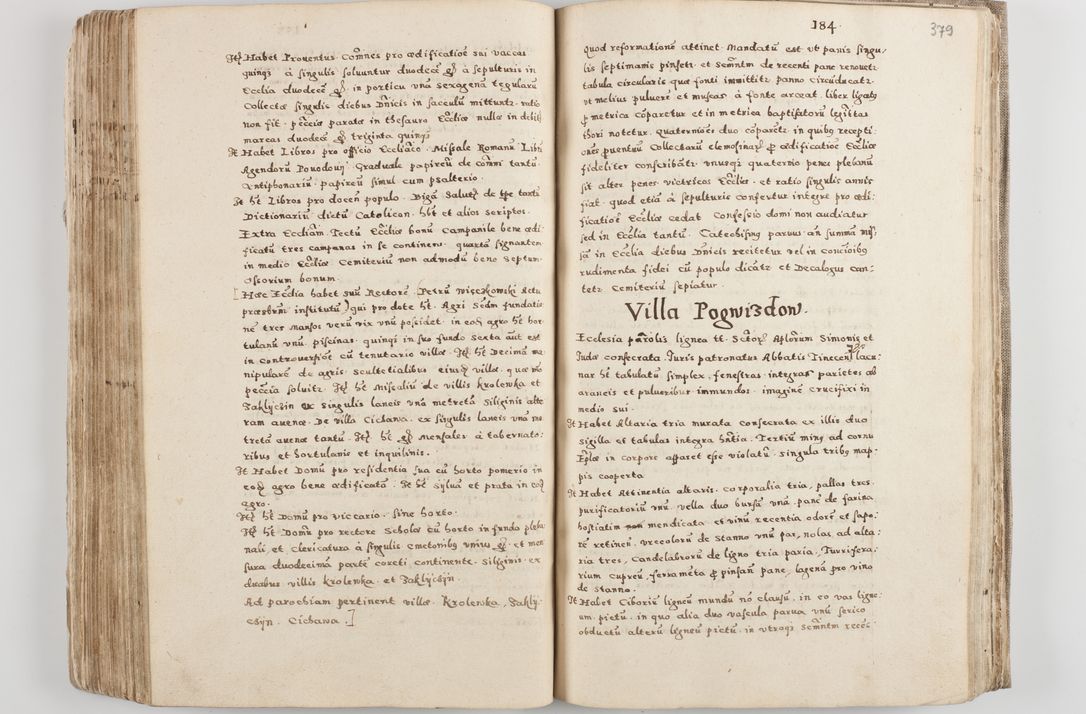 Itẽ Habet Prouentus. Coẽmnes pro ædificatioẽ sui vaccas
quinqȝ à singulis soluuntur duodecẽ gr̃ à sepulturis in
Ecclia duodecẽ gr̃. in porticu vnã sexagenã tegularũ
Collectæ singulis diebus Dñicis in sacculũ mittuntr. ratio
non fit. pecciæ parata in thesauro Eccliæ nulla in debit
marcas duodecẽ gr̃ triginta quinqȝ
It Habet Libros pro officio Eccliaco. Missale Romanũ Libri
Agendorũ Duoduoy Graduale papireũ de coĩni tantũ.
Antiphonariũ papireũ simul cum psalterio.
It ht̃ Libros pro docen populo. Bigã Salutẽ de tp̃e tantũ
Dictionariũ dictũ Catolicon. hẽt et alios scriptos.
Extra Eccliam. Tectũ Eccliæ bonũ Campanile bene ædi
ficatũ tres campanas in se continens. quartã signantem
in medio Eccliæ. Cemiteriũ non admodũ bene septum
Ossorium bonum.
[Hæc Ecclia habet suũ Rectorẽ. Petrũ Więczkowski Actu
præsbrm̃ institutũ) qui pro dote ht̃. Agri Scdm̃ fundatio
nẽ tres mansos verũ vix vnũ possidet. in eod agro ht̃ hor
tulanũ vnũ. piscinas quinqȝ in suo fundo sexta aũt est
in controuersioẽ cũ tenutario villæ. Itẽ ht̃ Decimã ma
nipularẽ de agris scultetialibus eiusdȝ villæ. quæ nõ
pecciã soluitr. Itẽ ht̃ Missaliũ de villis Krolewka et
Zaklÿczin ex singulis laneis vnã metretã siliginis alte
ram auenæ. De villa Cichawa. ex singulis laneis vnã me
tretã auenæ tantũ. Itẽ ht̃ gr̃ mensales à tabernato:
ribus et hortulanis et inquilinis.
It Habet Domũ pro residentia sua cũ horto pomerio in
eodȝ agro bene ædificatã. It ht̃ syluã et prata in eodȝ
agro.
Itẽ ht̃ Domũ pro viccario. sine horto.
Itẽ ht̃ Domũ pro rectore scholæ cũ horto in fundo pleba
nali, et clericatura à singulis cmetonibus vnius gr̃. et men
sura duodecimã partẽ coreti continente. siliginis. ex
duabus villis Krolewka. et Zaklÿczÿn.
Ad parochiam pertinent villæ. Krolewka, Zaklÿ
czÿn. Cichawa.]
184.
379
quod reformationẽ attinet. Mandatũ est vt panis singu
lis septimanis pinsetr. et Semẽntm de recenti pane renouetr
tabula circularis quæ fonti immittitr panno circũducatr.
vt melius puluerẽ et muscas à fonte arceat. liber ligatus
p metrica cõparetur et in metrica baptisatorũ legittȝ
thori notetur. quaterniões duo cõparetr in quibus recepti
ones prouentuũ Collectarũ elemosinarũ p ædificatioẽ Eccliæ
fideliter conscribãtr. vnusqȝ quaternio penes plebanũ
sit alter penes victricos Eccliæ. et ratio singulis annis
fiat. quod etiã à sepulturis confertur integre pro ædi:
ficatioẽ Eccliæ cedat. Confessio domi non audiatur
sed in Ecclia tantũ. Catechismus paruus añ summã mis
sã in Ecclia diebus Dñicis recitetur vel in concioibus
rudimenta fidei cũ populo dicãtr et Decalogus can:
tetr Cemiteriũ sepiatur.
Villa Pogwisdow.
Ecclesia pãrolis lignea tt. Sctor̃ Aplõrum Simonis et
Iudæ consecrata. Iuris patronatus Abbatis Tinecenȝ lacu:
nar ht̃ tabulatũ simplex, fenestras integras parietes ab
araneis et pulueribus immundos. imaginẽ crucifixi in
medio sui.
It Habet Altaria tria murata consecrata ex illis duo
sigilla et tabulas integra hñtia. Tertiũ minus ad cornu
Eplæ in corpore apparet esse violatũ. singula tribus map:
pis cooperta
It Habet Attinentia altaris. corporalia tria, pallas tres.
purificatoriũ vnũ. vella duo bursã vnã. panẽ de farina
hostiatim mendicata et vinũ recentia odorẽ et sapo:
rẽ retinen. vrceolorũ de stanno vnũ par, nolas ad alta:
ria tres, Candelabrorũ de ligno tria paria, Turrifera:
rium cupreũ, ferramẽta p pinsen pane, lagenã pro vino
de stanno.
It Habet Ciboriũ ligneũ mundũ nõ clausũ. in eo vas ligne:
um pictũ. in quo alia duo vascula parua vnũ serico
obductũ alterũ ligneũ pictũ. in vtroqȝ Semẽntm recẽs